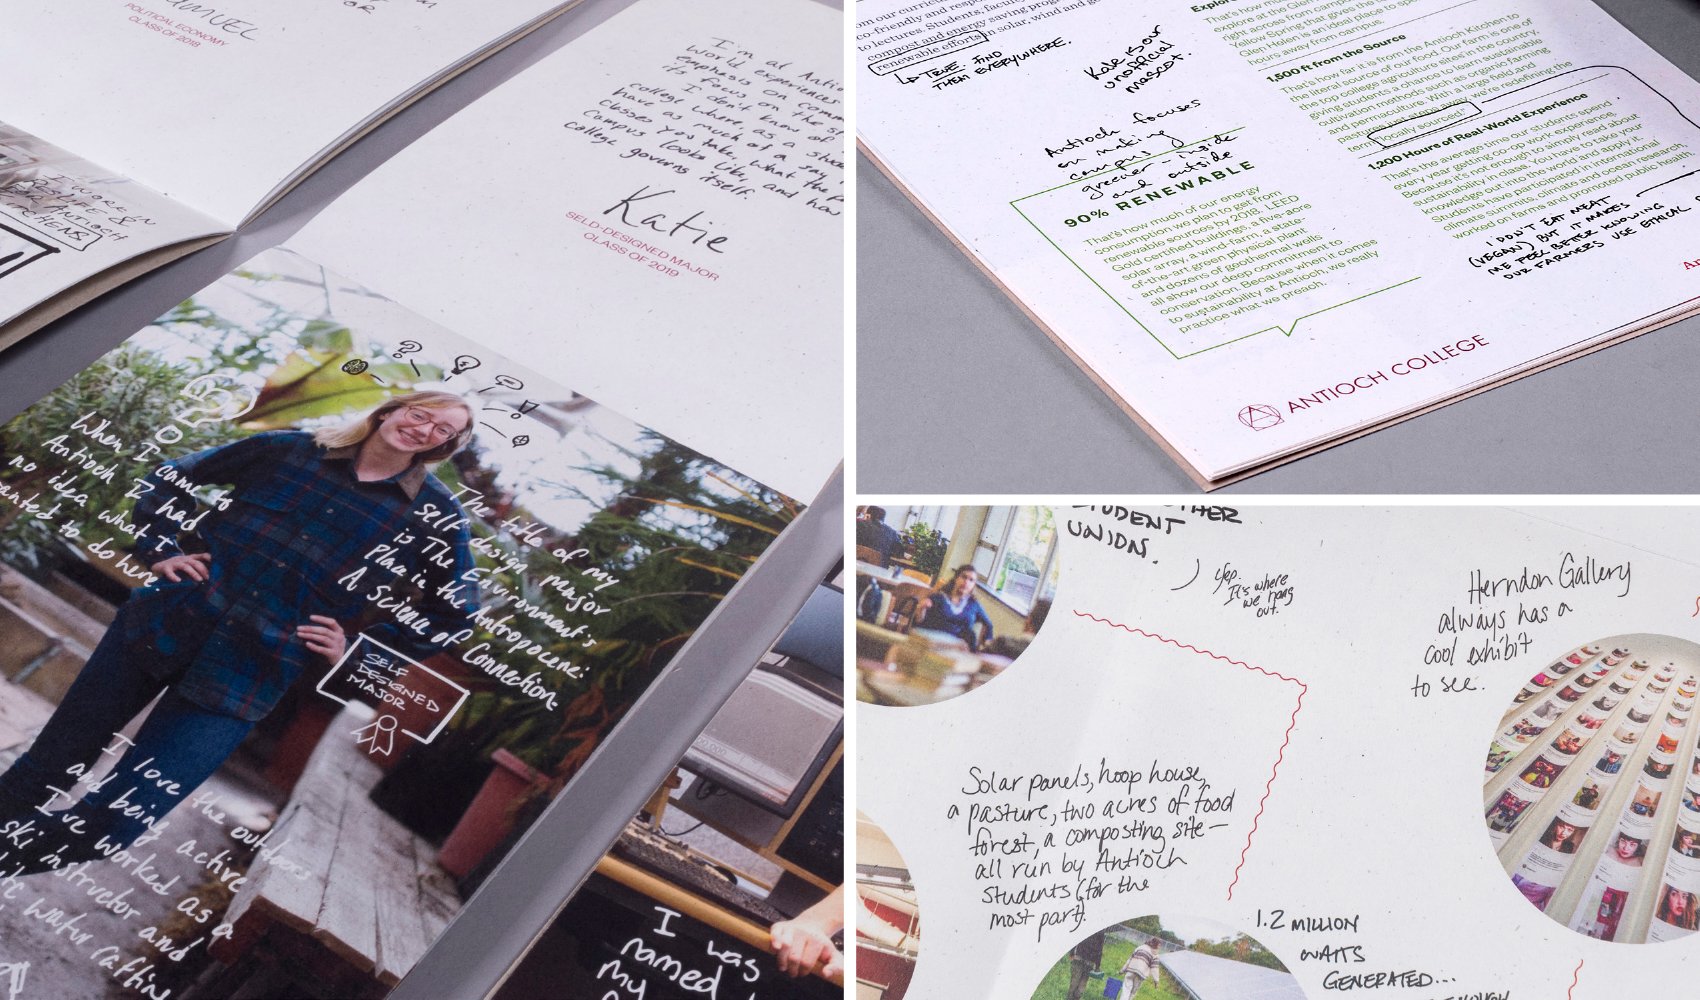 SAMUEL
POLITICAL ECONOMY
CLASS OF 2018
I'm at Antio
World experiences
emphasis on comm
its focus on the sp
I don't know of
college where, as a stude
have as much of a say i
classes you take, what the fa
campus looks like, and how
college governs itself.
Katie
SELD-DESIGNED MAJOR
CLASS OF 2019
I WORK ON
When I came to
Antioch I had
no idea what I
wanted to do here.
The title of my
self-design major
is The Environment's
Place in the Antropocene:
A Science of Connection.
SELF
DESIGNED
MAJOR
I love the outdoors
and being active
I've worked as a
ski instructor and
water rafting
I was
named
my
om our curricu
co-friendly and respon
to lectures. Students, facu
compost and energy saving prog
renewable efforts in solar, wind and g
↳ TRUE. FIND
THEM EVERYWHERE.
Kale is our
unofficial
mascot.
Antioch focuses
on making
campus
greener - inside
and outside
90% RENEWABLE
That's how much of our energy
consumption we plan to get from
renewable sources by 2018. LEED
Gold certified buildings, a five-acre
solar array, a wind-farm, a state-
of-the-art green physical plant
and dozens of geothermal wells
all show our deep commitment to
conservation. Because when it comes
to sustainability at Antioch, we really
practice what we preach.
Explore
That's how mu
explore at the Glen
right across from camp
Yellow Spring that gives the
Glen Helen is an ideal place to spe
hours away from campus.
1,500 ft from the Source
That's how far it is from the Antioch Kitchen to
the literal source of our food. Our farm is one of
the top college agriculture sites in the country,
giving students a chance to learn sustainable
cultivation methods such as organic farming
and permaculture. With a large field and
pasture just steps away, we're redefining the
term "locally sourced."
1,200 Hours of Real-World Experience
That's the average time our students spend
every year getting co-op work experience,
because it's not enough to simply read about
sustainability in class. You have to take your
knowledge out into the world and apply it.
Students have participated in international
climate summits, climate and ocean research
worked on farms and promoted public health.
I DON'T EAT MEAT
(VEGAN) BUT IT MAKES
ME FEEL BETTER KNOWING
OUR FARMERS USE ETHICAL
ANTIOCH COLLEGE
STUDENT
UNION.
Yep.
It's where
we hang
out.
Herndon Gallery
always has a
cool exhibit
to see.
Solar panels, hoop house,
a pasture, two acres of food
forest, a composting site—
all run by Antioch
students (for the
most part).
1.2 MILLION
WATTS
GENERATED...